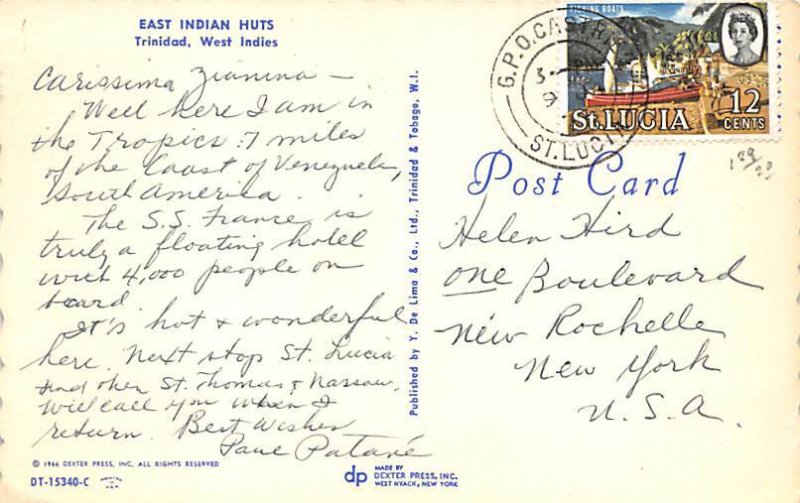 EAST INDIAN HUTS
Trinidad, West Indies
Carissima Zianina —
Well here I am in
the Tropics. 7 miles
of the Coast of Venezuela,
South America.
The S.S. France is
truly a floating hotel
with 4,000 people on
board
It's hot & wonderful
here. Next stop St. Lucia
and then St. Thomas & Nassau.
Will call you when I
return. Best Wishes
Patané
© 1966 DEXTER PRESS, INC. ALL RIGHTS RESERVED
DT-15340-C
Published by Y. De Lima & Co., Ltd., Trinidad & Tobago, W.I.
dp
MADE BY
DEXTER PRESS, INC.
WEST NYACK, NEW YORK
FISHING BOATS
St. LUCIA
12
CENTS
G.P.O. CASTR
ST. LUCI
Post Card
Helen Hird
One Boulevard
New Rochelle
New York
U.S.A.